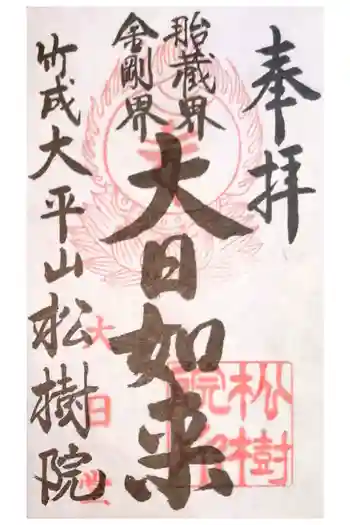 奉拝
胎蔵界
金剛界
大日如来
竹成大平山松樹院
松樹
院
大日